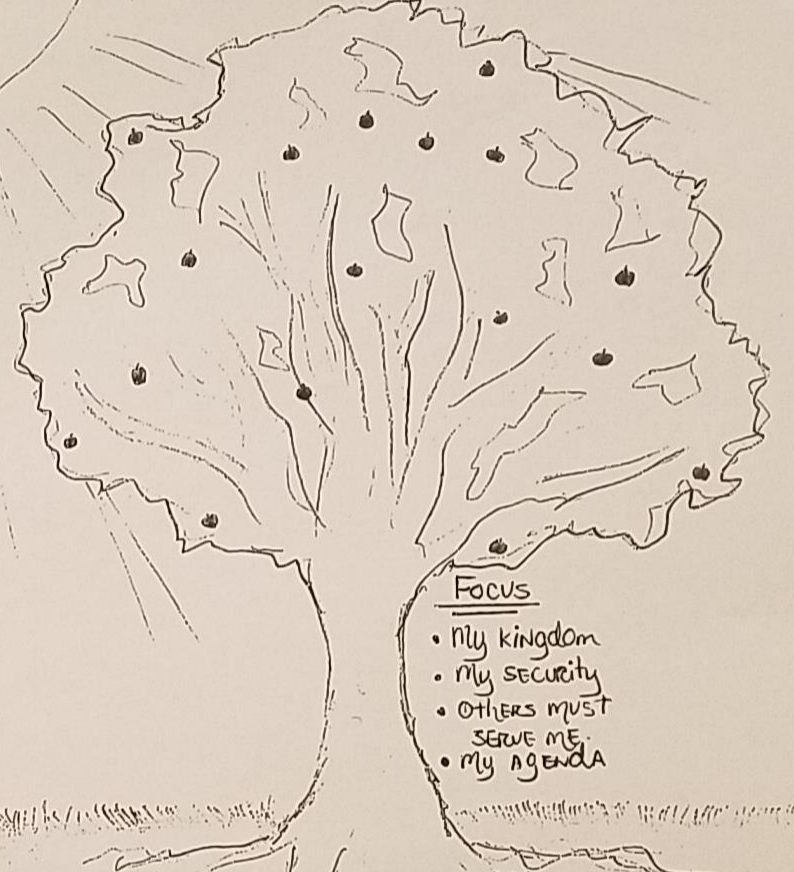 Focus
• My Kingdom
• My SECURITY
• OTHERS MUST
SERVE ME.
• My AGENDA